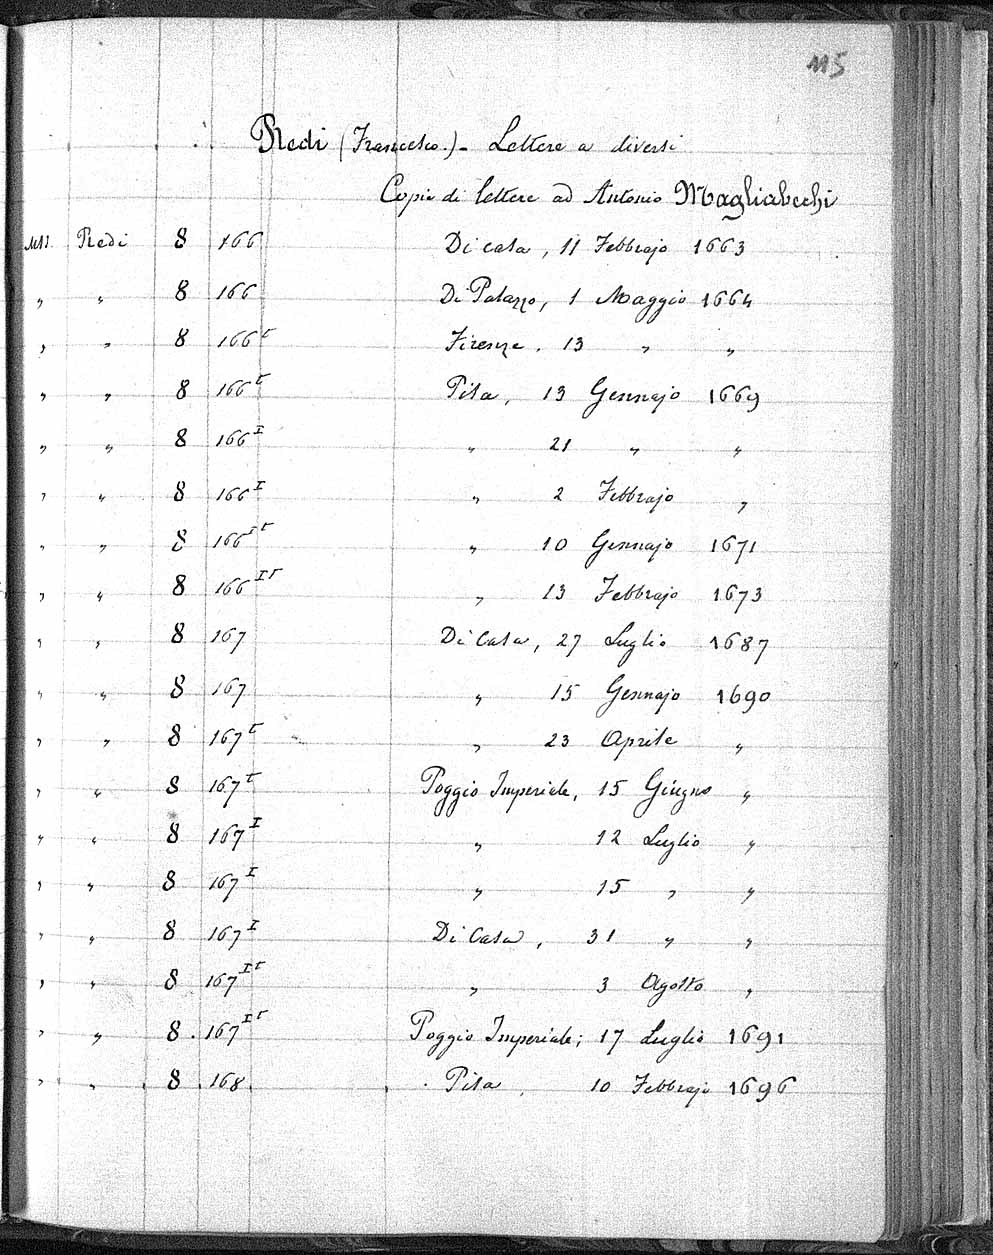 115
Redi (Francesco.) - Lettere a diversi
Copie di lettere ad Antonio Magliabechi
MSS. Redi 8 166 Di casa, 11 Febbrajo 1663
" " 8 166 Di Palazzo, 1 Maggio 1664
" " 8 166 t Firenze, 13 " "
" " 8 166 t Pisa, 13 Gennajo 1669
" " 8 166 I " 21 " "
" " 8 166 I " 2 Febbrajo "
" " 8 166 I t " 10 Gennajo 1671
" " 8 166 I t " 13 Febbrajo 1673
" " 8 167 Di Casa, 27 Luglio 1687
" " 8 167 " 15 Gennajo 1690
" " 8 167 t " 23 Aprile "
" " 8 167 t Poggio Imperiale, 15 Giugno "
" " 8 167 I " 12 Luglio "
" " 8 167 I " 15 " "
" " 8 167 I Di Casa, 31 " "
" " 8 167 I t " 3 Agosto "
" " 8 167 I t Poggio Imperiale; 17 Luglio 1691
" " 8 168 Pisa 10 Febbrajo 1696